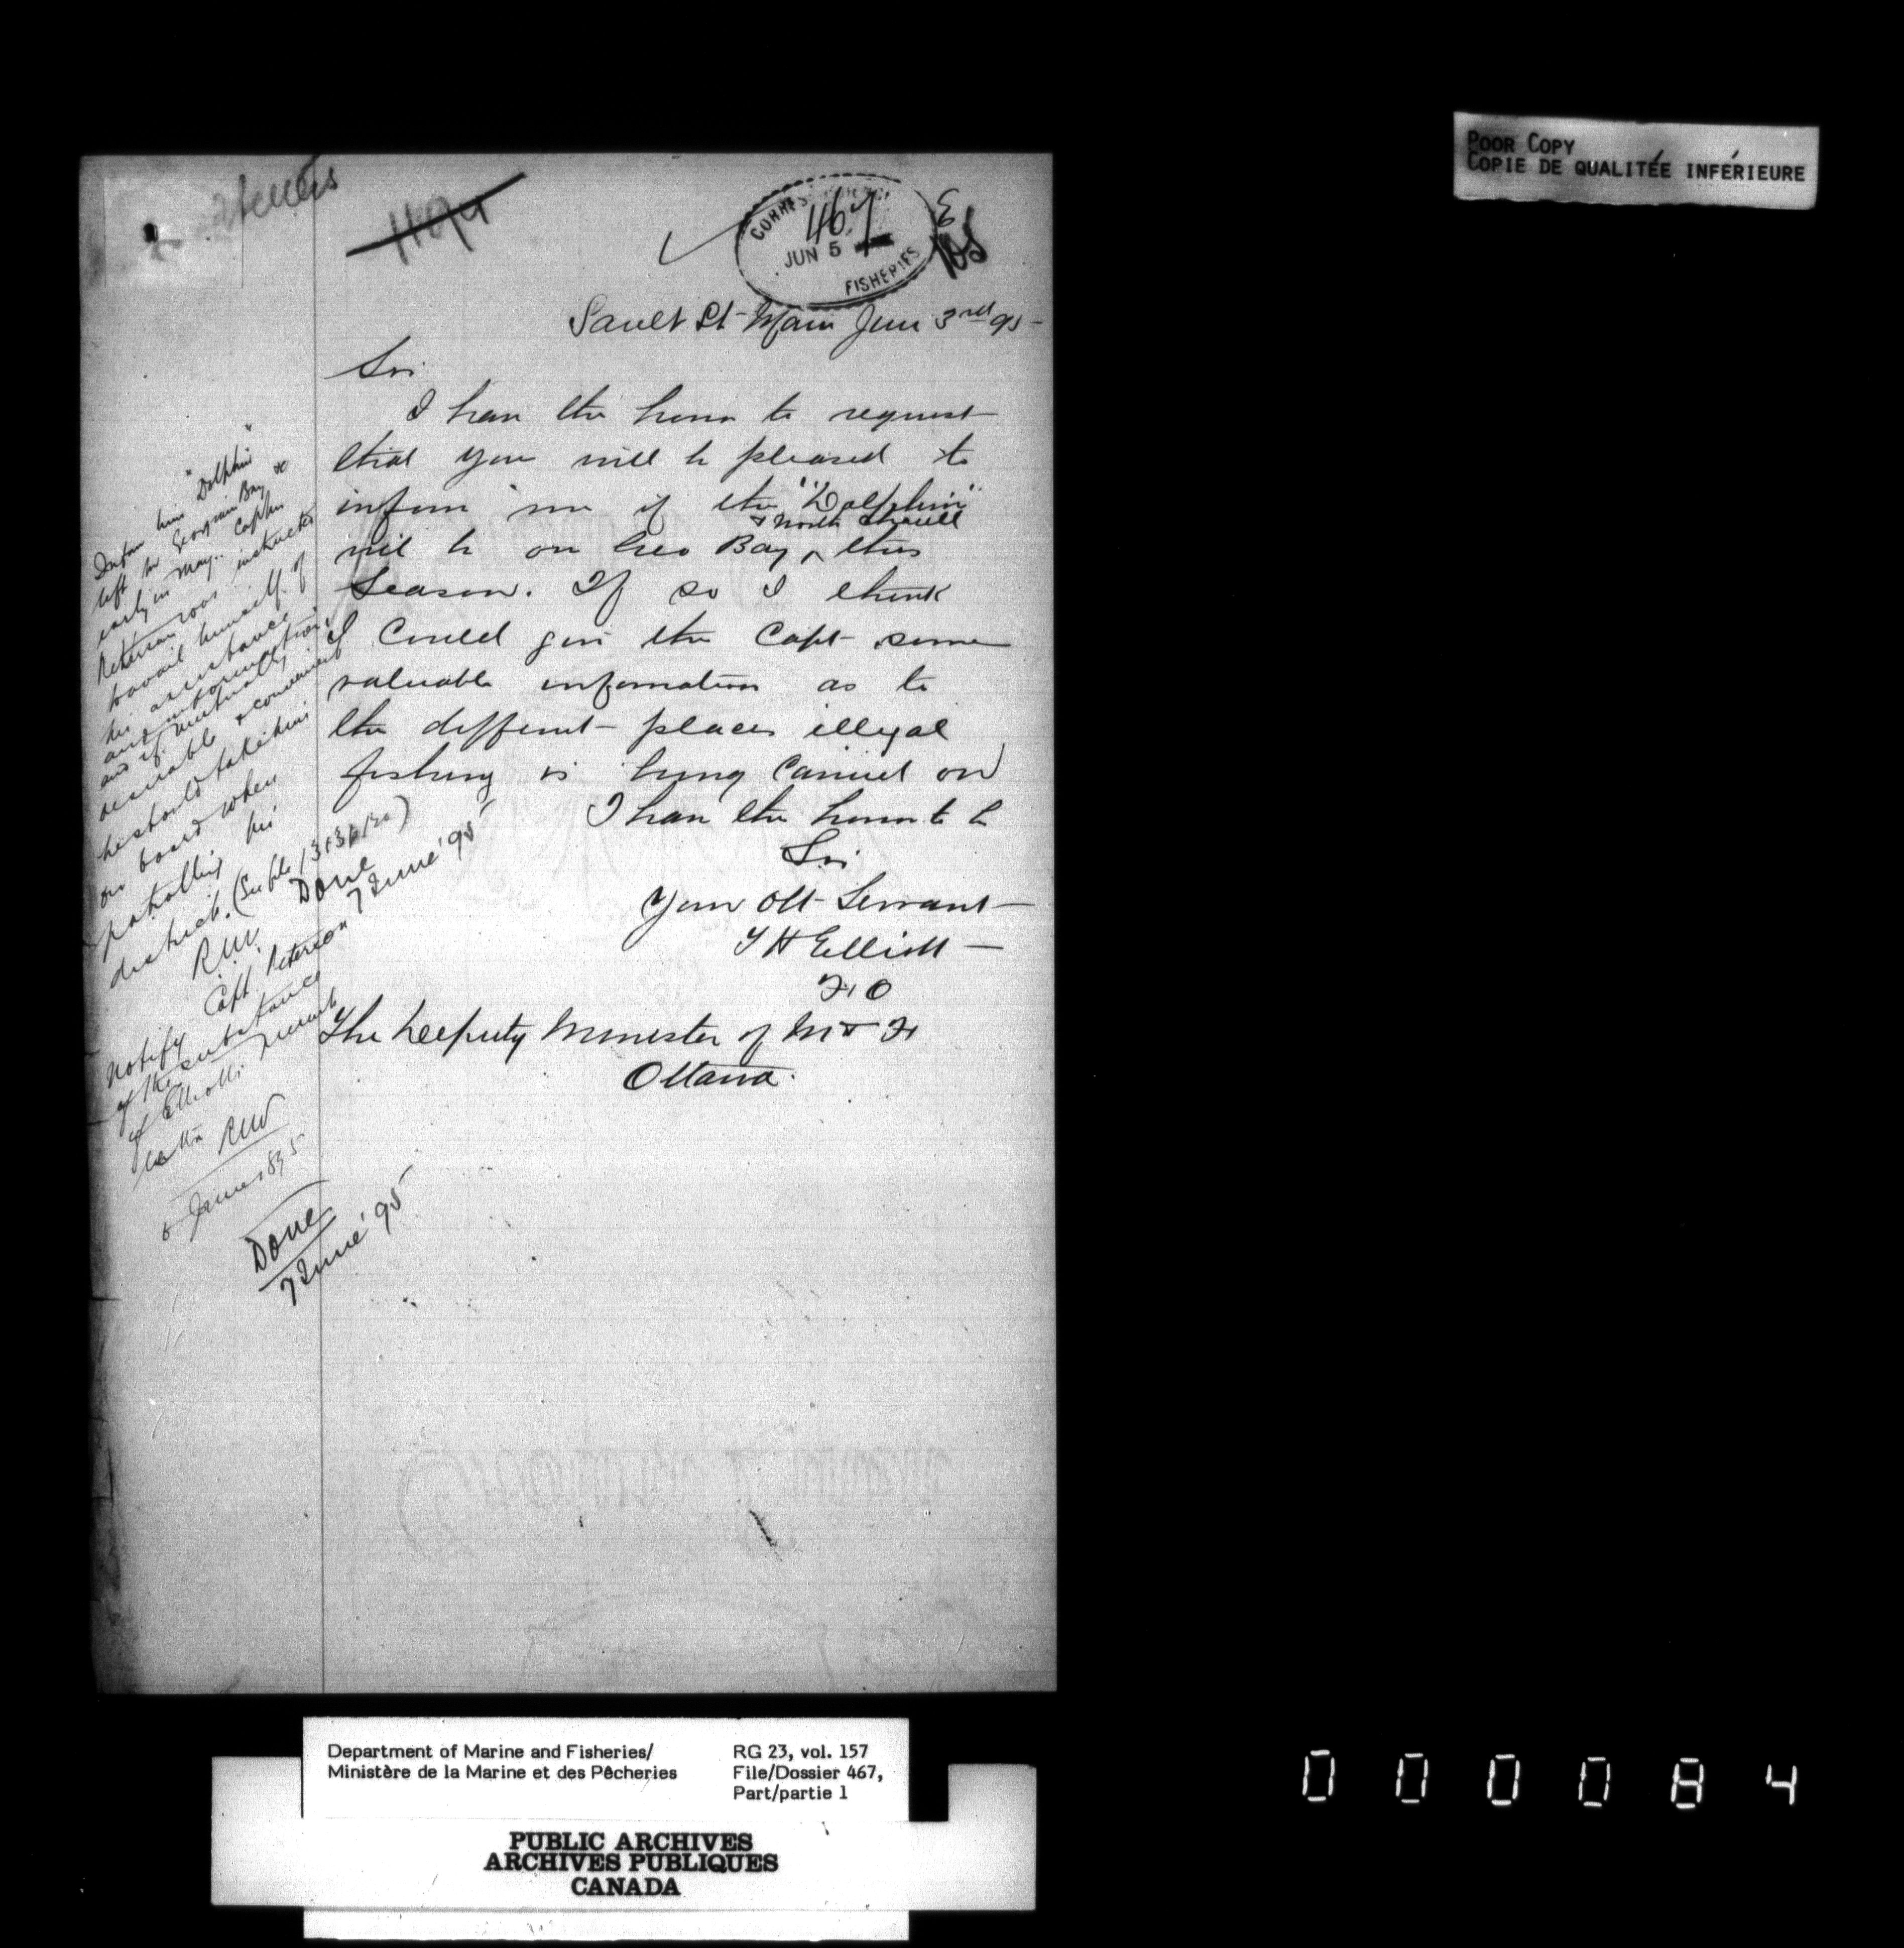 POOR COPY
COPIE DE QUALITÉE INFÉRIEURE
1104
467
JUN 5
FISHERIES
Sault St Marie June 3rd 95
Sir
I have the honor to request
that you will be pleased to
inform me if the "Dolphin"
will be on Geo Bay & North Channell this
Season. If so I think
I Could give the Capt some
valuable information as to
the different places illegal
fishing is being Carried on
I have the honor to be
Sir
Your Obt Servant
T H Elliott
F. O
The Deputy Minister of M & F
Ottawa.
Inform him "Dolphin"
left for Georgian Bay &c
early in May. Captn
Peterson was instructed
to avail himself of
his assistance
and information
and if mutually
desirable & convenient
he should take him
on board when
patrolling his
district.
R.W.
Done
7 June '95
Notify Capt Peterson
of the substance
of Elliott's recent
letter RW
6 June 1895
Done
7 June '95
Department of Marine and Fisheries/
Ministère de la Marine et des Pêcheries
RG 23, vol. 157
File/Dossier 467,
Part/partie 1
PUBLIC ARCHIVES
ARCHIVES PUBLIQUES
CANADA
000084